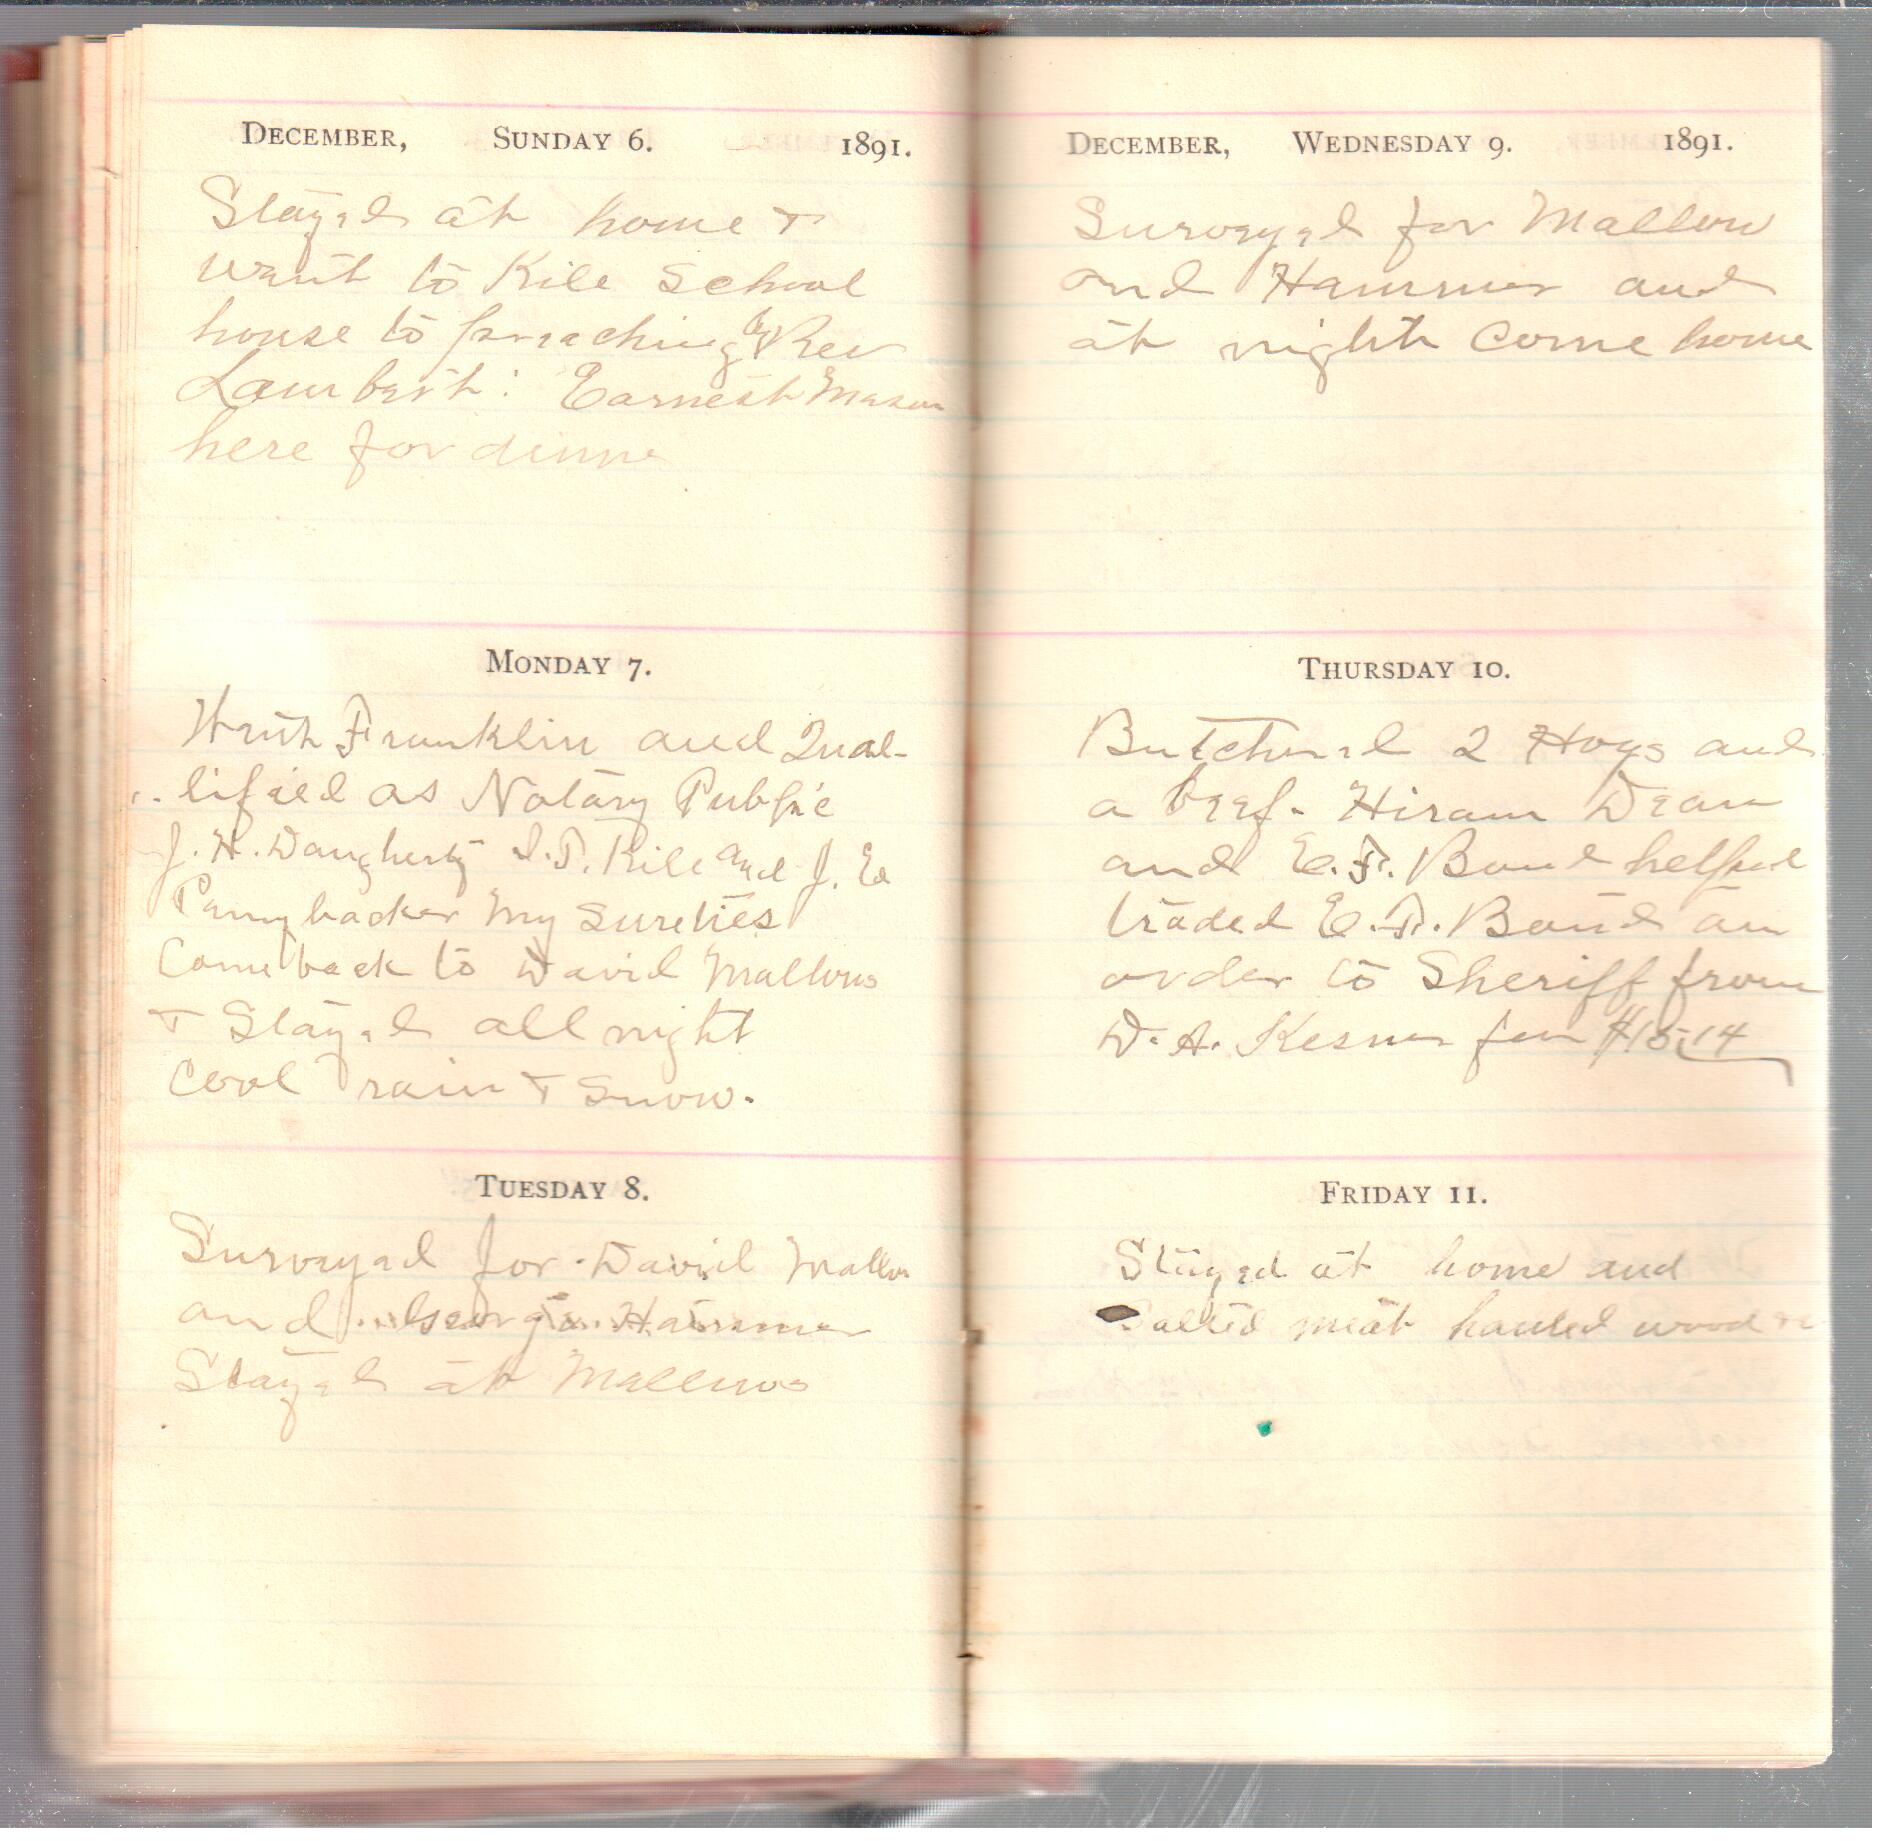 December, Sunday 6. 1891.
Stayed at home &
went to Kile School
house to preaching by Rev
Lambert: Earnest Mason
here for dinne
Monday 7.
Went Franklin and Qual-
lified as Notary Public
J. H. Daugherty I. T. Kile and J. E.
Pennybacker my sureties
Come back to David Mallows
& Stayed all night
Cool rain & Snow.
Tuesday 8.
Surveyed for David Mallow
and George Hammer
Stayed at Mallows
December, Wednesday 9. 1891.
Surveyed for Mallow
and Hammer and
at night come home
Thursday 10.
Butchered 2 Hogs and
a beef - Hiram Dean
and E. F. Bond helped
traded E. F. Bond an
order to Sheriff from
D. A. Kesner for $15.14
Friday 11.
Stayed at home and
Salted meat hauled wood